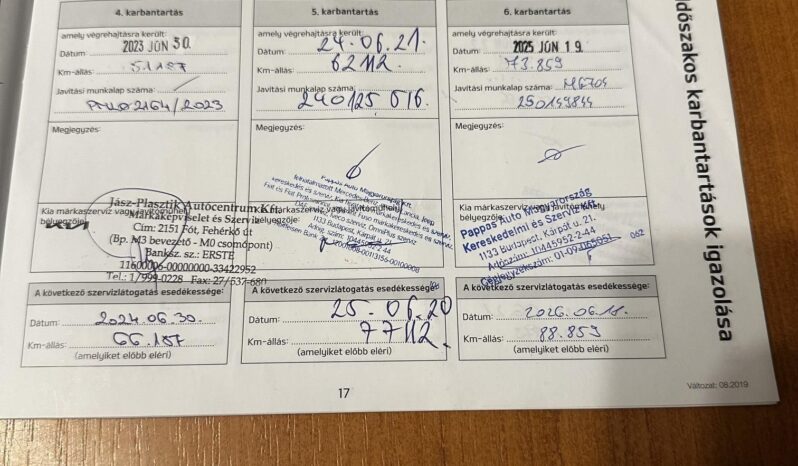 4. karbantartás
amely végrehajtásra került:
Dátum: 2023 JÚN 30.
Km-állás: 51.187
Javítási munkalap száma:
PMLO2164/2023
Megjegyzés:
Kia márkaszerviz vagy javítóműhely
bélyegzője:
Jász-Plasztik Autócentrum Kft.
Márkaképviselet és Szerviz
Cím: 2151 Fót, Fehérkő út
(Bp. M3 bevezető - M0 csomópont)
Banksz. sz.: ERSTE
11600006-00000000-33422952
Tel.: 1/999-0228 Fax: 27/537-680
A következő szervizlátogatás esedékessége:
Dátum: 2024.06.30.
Km-állás: 66.187
(amelyiket előbb eléri)
5. karbantartás
amely végrehajtásra került:
Dátum: 24.06.21.
Km-állás: 62112
Javítási munkalap száma:
240125 616.
Megjegyzés:
Pappas Auto Magyarország Kft.
1133 Budapest, Kárpát u. 21.
Adósz. szám: 10445952-2-44
Kia márkaszerviz vagy javítóműhely
bélyegzője:
A következő szervizlátogatás esedékessége:
Dátum: 25.06.20
Km-állás: 77112.
(amelyiket előbb eléri)
6. karbantartás
amely végrehajtásra került:
Dátum: 2025 JÚN 19.
Km-állás: 73.859
Javítási munkalap száma:
250149844
Megjegyzés:
Kia márkaszerviz vagy javítóműhely
bélyegzője:
Pappas Auto Magyarország
Kereskedelmi és Szerviz Kft.
1133 Budapest, Kárpát u. 21.
Adószám: 10445952-2-44
Cégjegyzékszám:
062
A következő szervizlátogatás esedékessége:
Dátum: 2026.06.18.
Km-állás: 88.859
(amelyiket előbb eléri)
dőszakos karbantartások igazolása
17
Változat: 08.2019